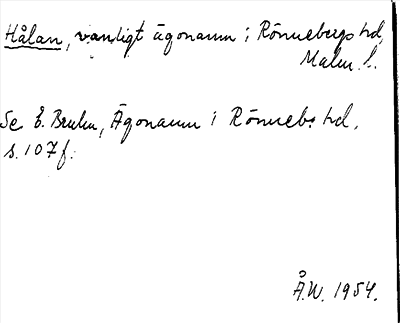 Hålan, vanligt ägonamn i Rönnebergs hd,
Malm. l.
Se E. Bruhn, Ägonamn i Rönneb:s hd.
s. 107 f.
Å.W. 1954.